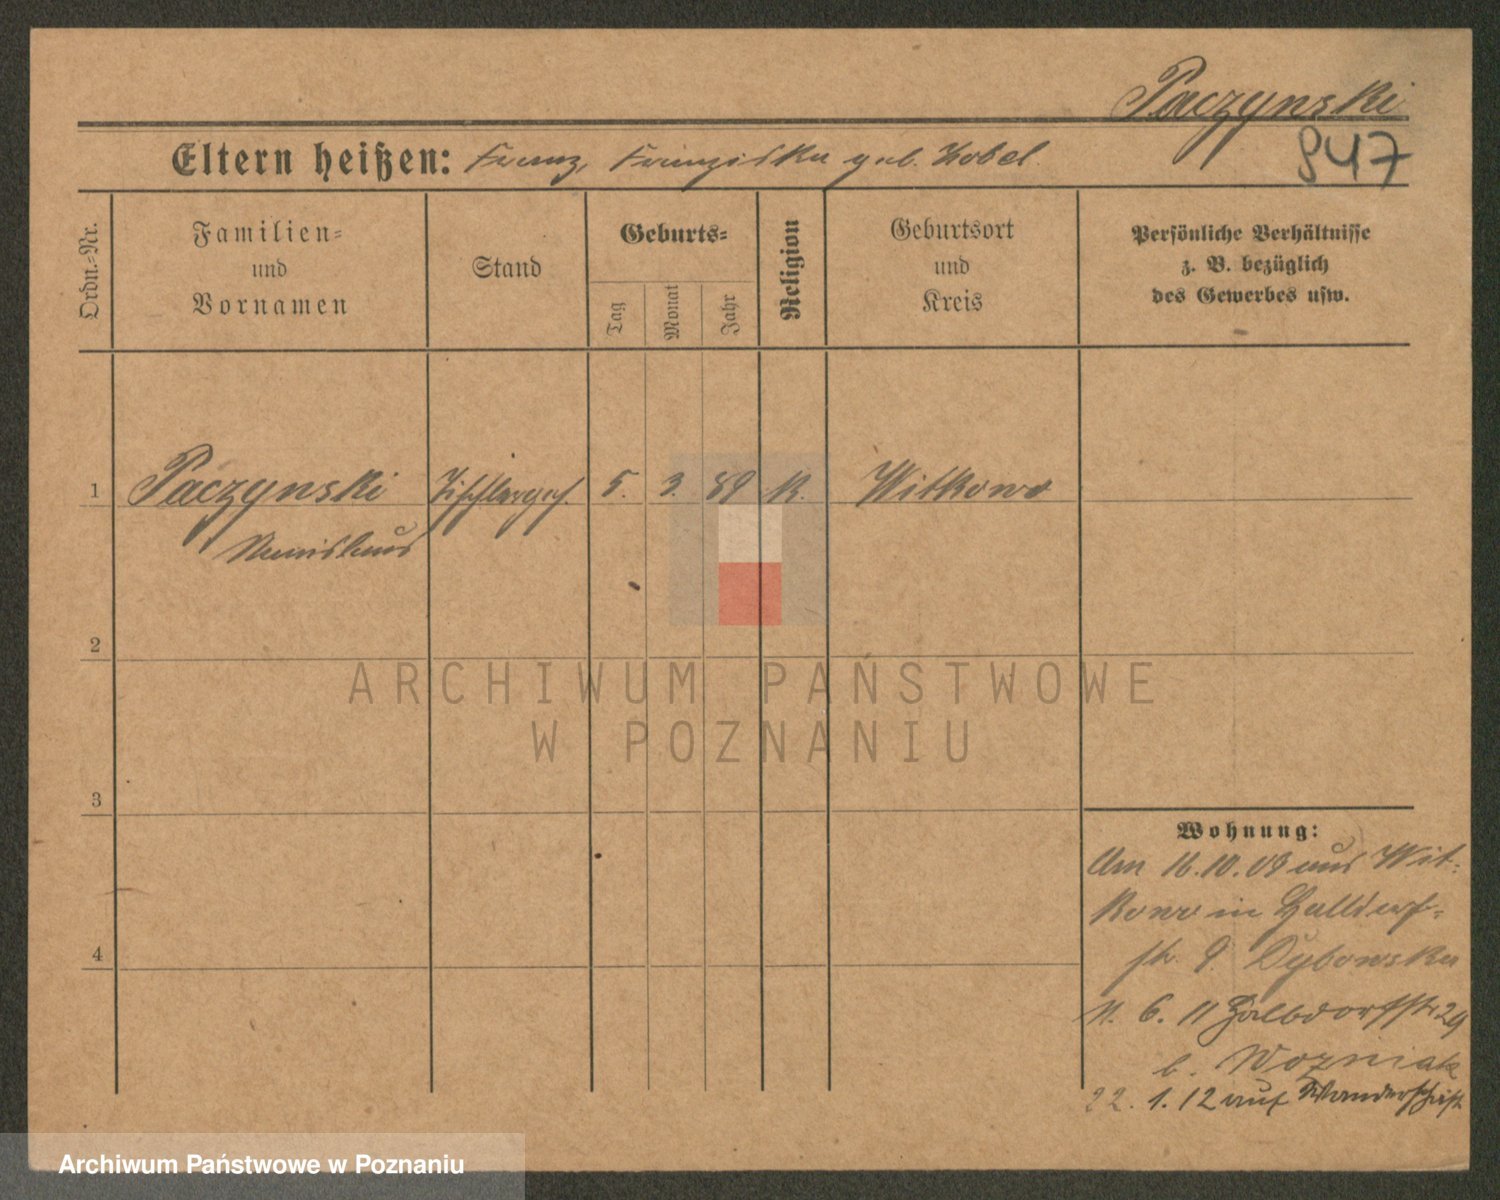 Paczynski
947
Eltern heißen: Franz, Franziska geb. Kobel.
Ordn.-Nr.
Familien-
und
Vornamen
Stand
Geburts-
Tag
Monat
Jahr
Religion
Geburtsort
und
Kreis
Persönliche Verhältnisse
z. B. bezüglich
des Gewerbes usw.
1 Paczynski Tischlerges. 5. 3. 89 K. Witkowo
Stanislaus
2
3
4
ARCHIWUM PAŃSTWOWE
W POZNANIU
Wohnung:
Am 16.10.09 aus Wit-
kowo in Halldorf-
str. 9. Dybowska
11. 6. 11 Halbdorfstr. 29
b. Wozniak
22. 1. 12 auf Wanderschaft
Archiwum Państwowe w Poznaniu